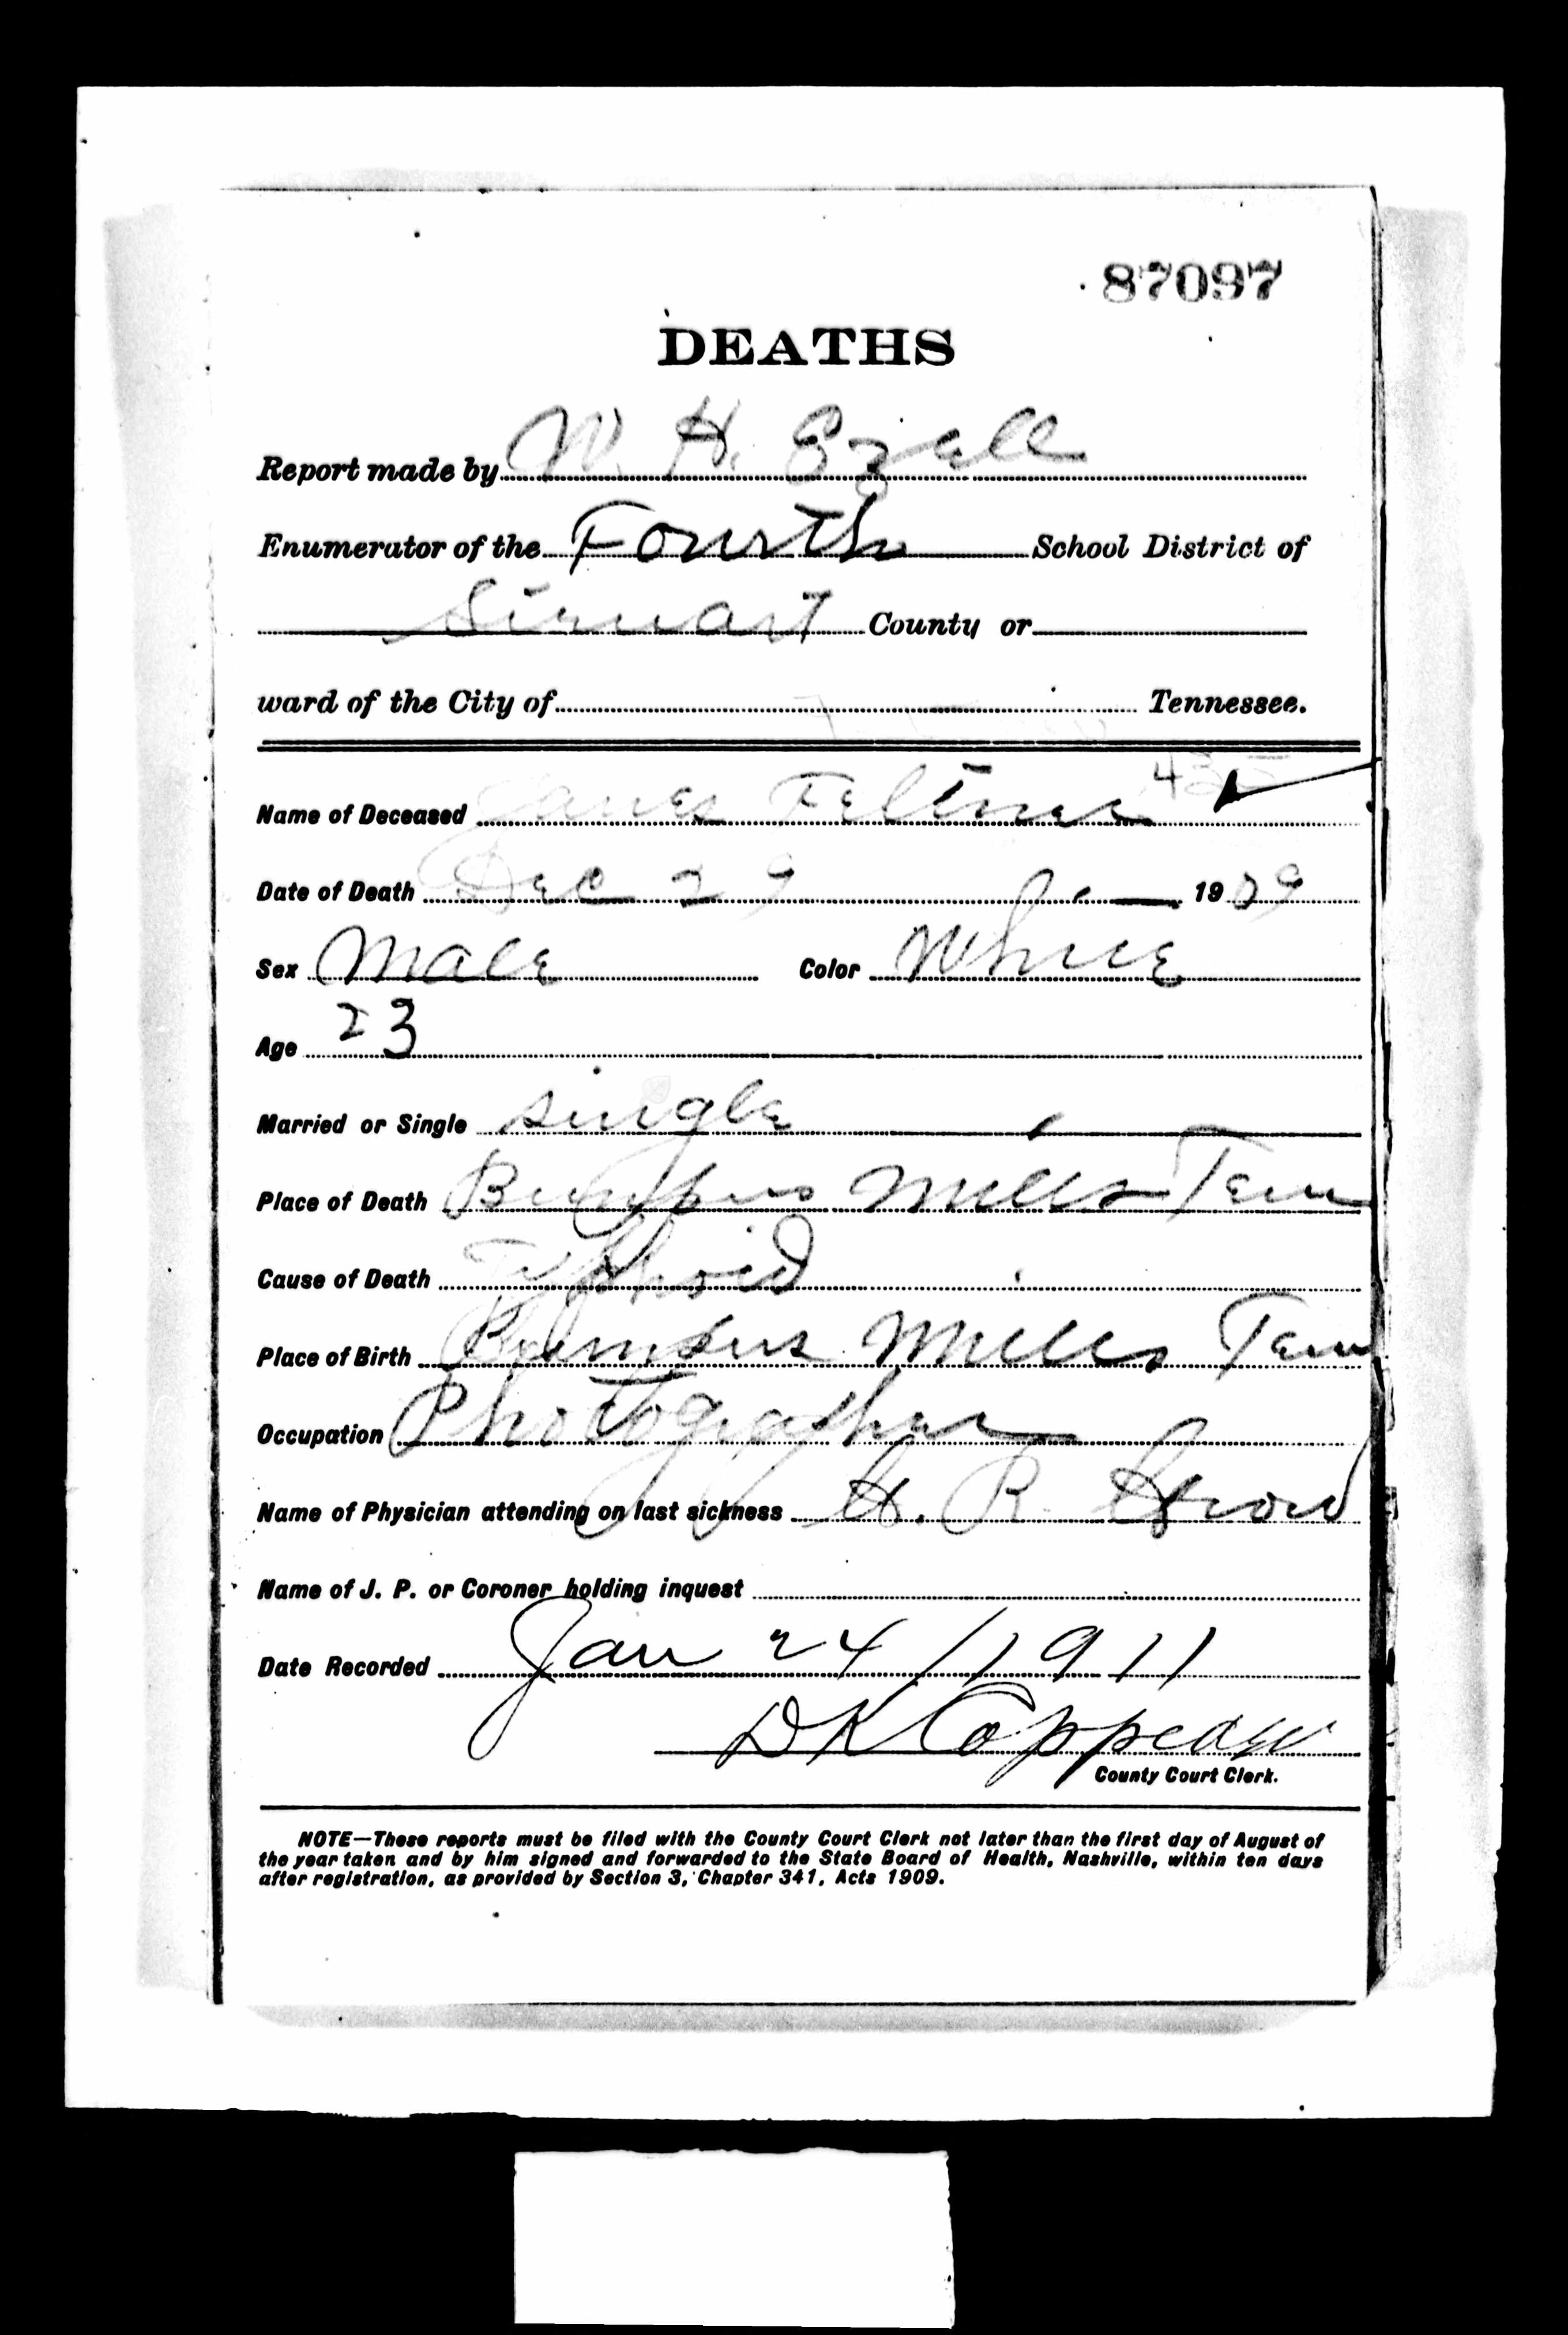 87097
DEATHS
Report made by W. H. Ezell
Enumerator of the Fourth School District of
Stewart County or
ward of the City of Tennessee.
Name of Deceased James Feltner
Date of Death Dec 29 1909
Sex Male Color White
Age 23
Married or Single single
Place of Death Bumpus Mills Tenn
Cause of Death Typhoid
Place of Birth Bumpus Mills Tenn
Occupation Photographer
Name of Physician attending on last sickness H. R.
Name of J. P. or Coroner holding inquest
Date Recorded Jan 24/1911
D K
County Court Clerk.
NOTE—These reports must be filed with the County Court Clerk not later than the first day of August of
the year taken and by him signed and forwarded to the State Board of Health, Nashville, within ten days
after registration, as provided by Section 3, Chapter 341, Acts 1909.